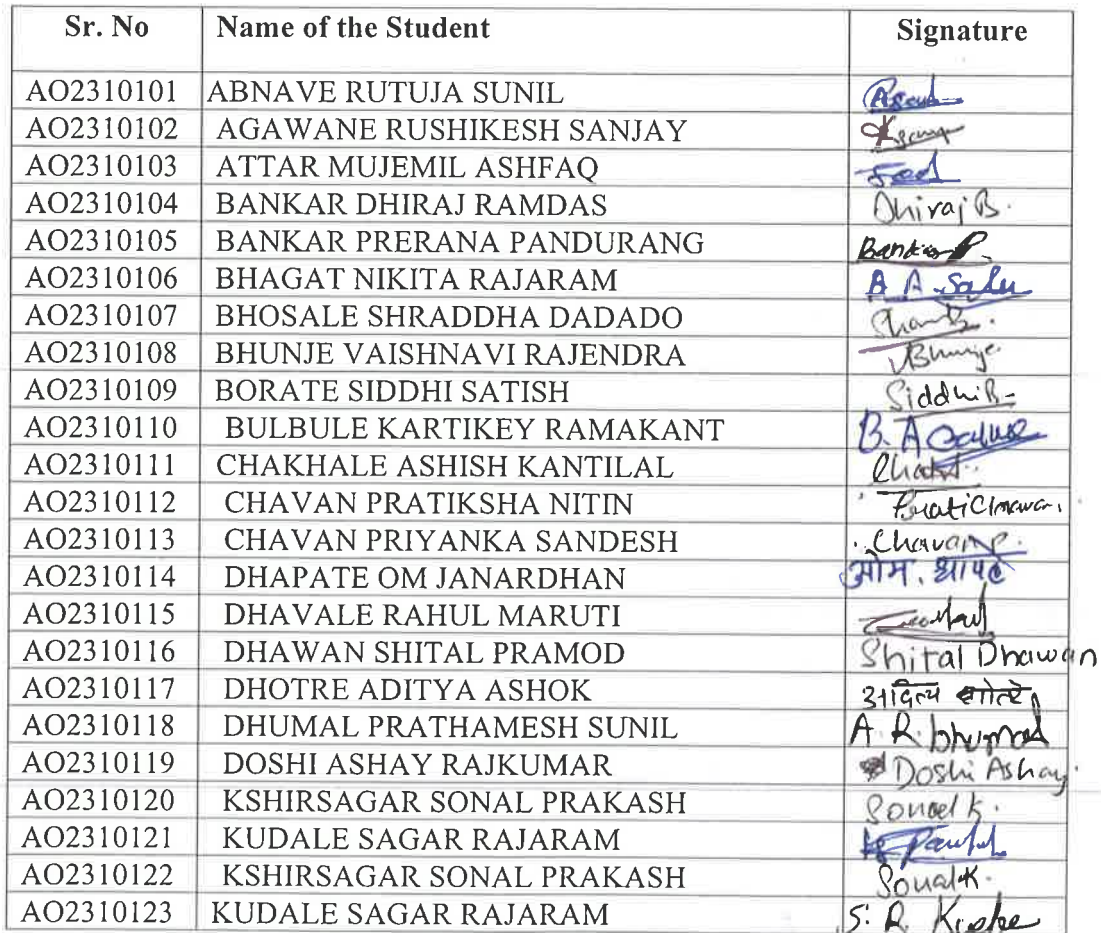 Sr. No Name of the Student Signature
AO2310101 ABNAVE RUTUJA SUNIL
AO2310102 AGAWANE RUSHIKESH SANJAY
AO2310103 ATTAR MUJEMIL ASHFAQ
AO2310104 BANKAR DHIRAJ RAMDAS Dhiraj B.
AO2310105 BANKAR PRERANA PANDURANG Bankar P.
AO2310106 BHAGAT NIKITA RAJARAM A A
AO2310107 BHOSALE SHRADDHA DADADO
AO2310108 BHUNJE VAISHNAVI RAJENDRA VBhunje
AO2310109 BORATE SIDDHI SATISH Siddhi B-
AO2310110 BULBULE KARTIKEY RAMAKANT B. A
AO2310111 CHAKHALE ASHISH KANTILAL
AO2310112 CHAVAN PRATIKSHA NITIN
AO2310113 CHAVAN PRIYANKA SANDESH Chavan P.
AO2310114 DHAPATE OM JANARDHAN ओम. धापटे
AO2310115 DHAVALE RAHUL MARUTI
AO2310116 DHAWAN SHITAL PRAMOD Shital Dhawan
AO2310117 DHOTRE ADITYA ASHOK आदित्य धोत्रे
AO2310118 DHUMAL PRATHAMESH SUNIL A. R.
AO2310119 DOSHI ASHAY RAJKUMAR Doshi Ashay.
AO2310120 KSHIRSAGAR SONAL PRAKASH Sonal K.
AO2310121 KUDALE SAGAR RAJARAM
AO2310122 KSHIRSAGAR SONAL PRAKASH Sonal K.
AO2310123 KUDALE SAGAR RAJARAM S. R.